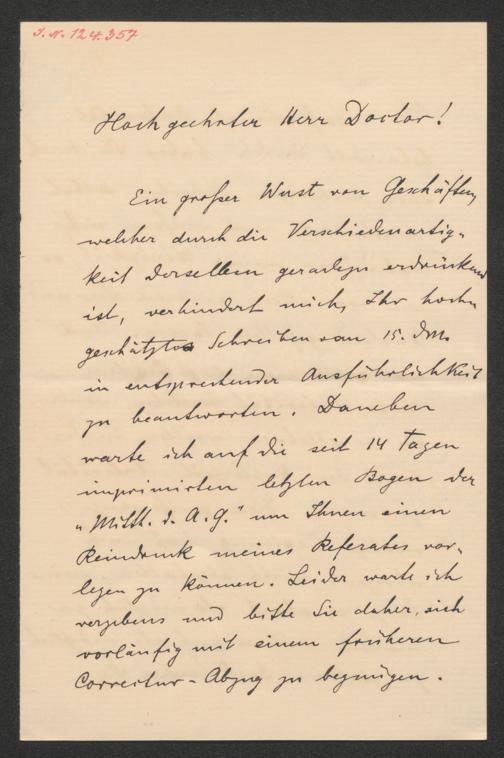 J.N. 124.357
Hochgeehrter Herr Doctor!
Ein großer Wust von Geschäften,
welcher durch die Verschiedenartig-
keit derselben geradezu erdrückend
ist, verhindert mich, Ihr hoch-
geschätztes Schreiben vom 15. d. M.
in entsprechender Ausführlichkeit
zu beantworten. Daneben
warte ich auf die seit 14 Tagen
imprimirten letzten Bogen der
„Mitth. d. A. G.“ um Ihnen einen
Reindruck meines Referates vor-
legen zu können. Leider warte ich
vergebens und bitte Sie daher, sich
vorläufig mit einem früheren
Correctur-Abzug zu begnügen.